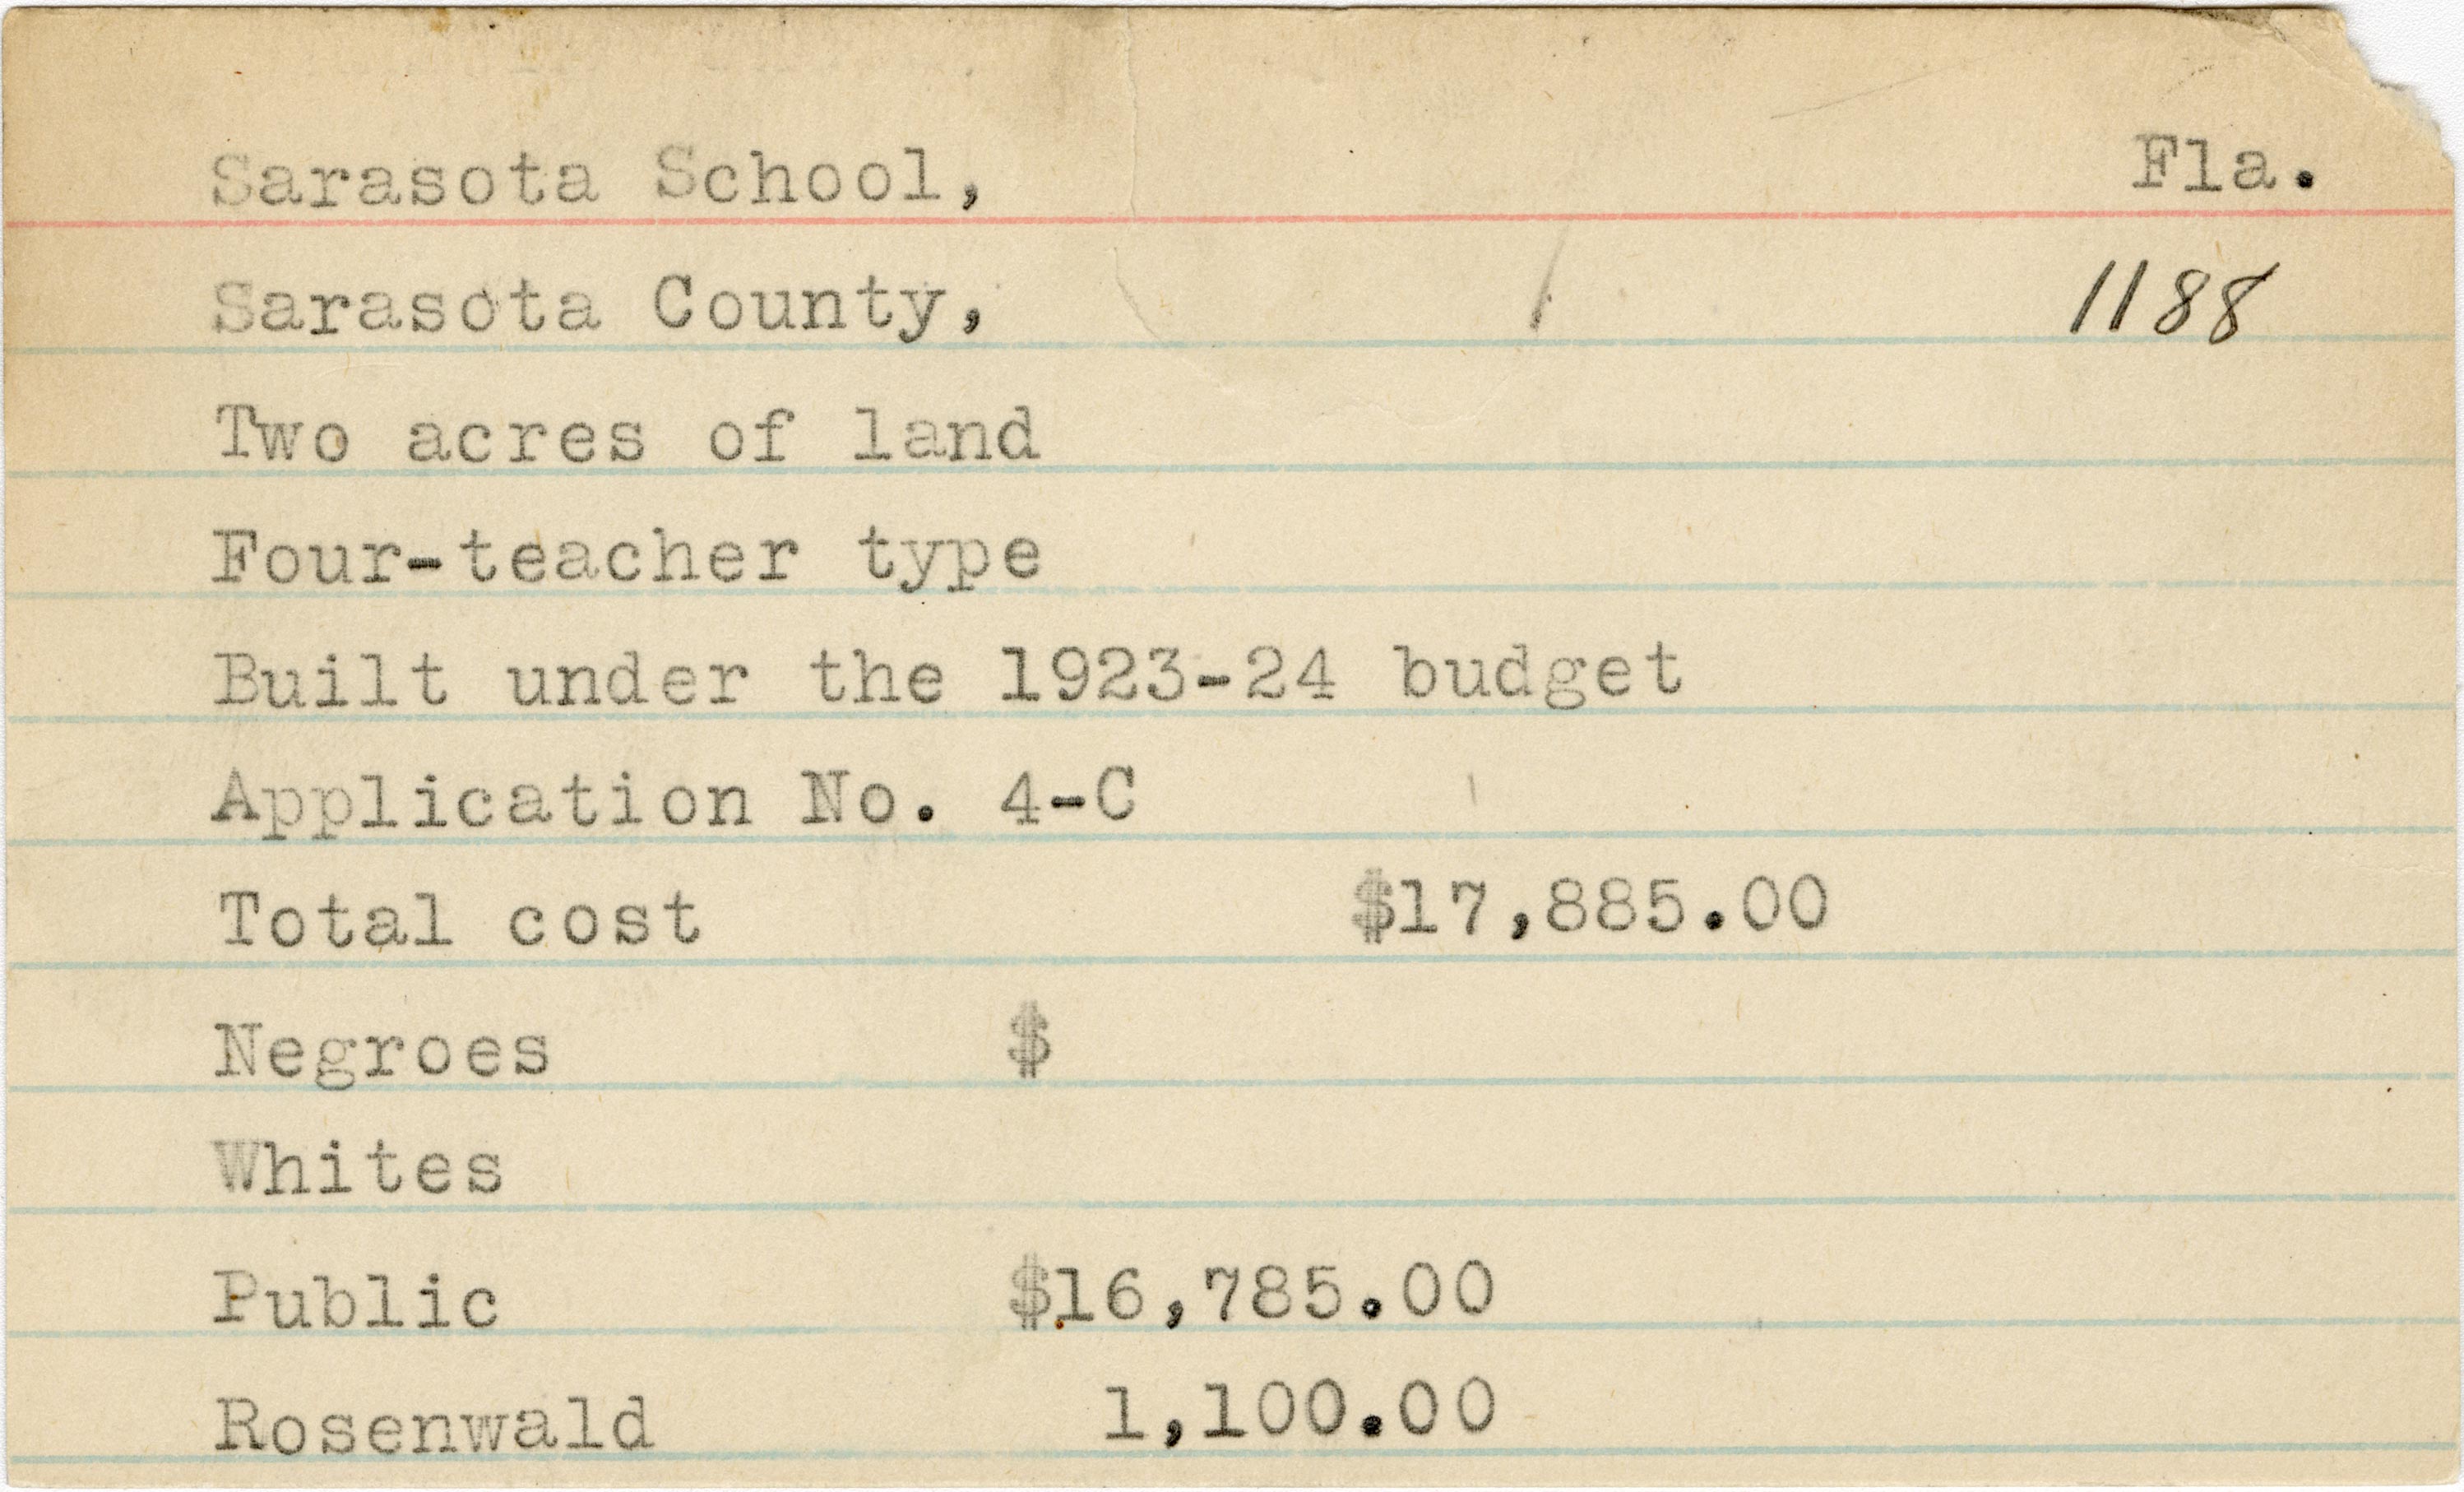 Sarasota School, Fla.
Sarasota County, 1188
Two acres of land
Four-teacher type
Built under the 1923-24 budget
Application No. 4-C
Total cost $17,885.00
Negroes $
Whites
Public $16,785.00
Rosenwald 1,100.00